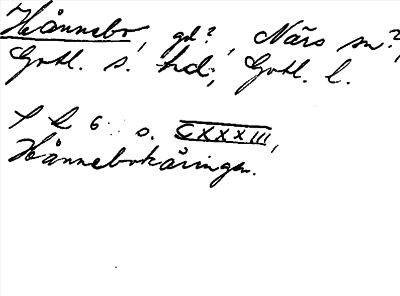 Hånnebo, gd?, Närs sn?,
Gotl. s. hd; Gotl. l.
S L 6: s. CXXXIII,
Hånnebokäringen.